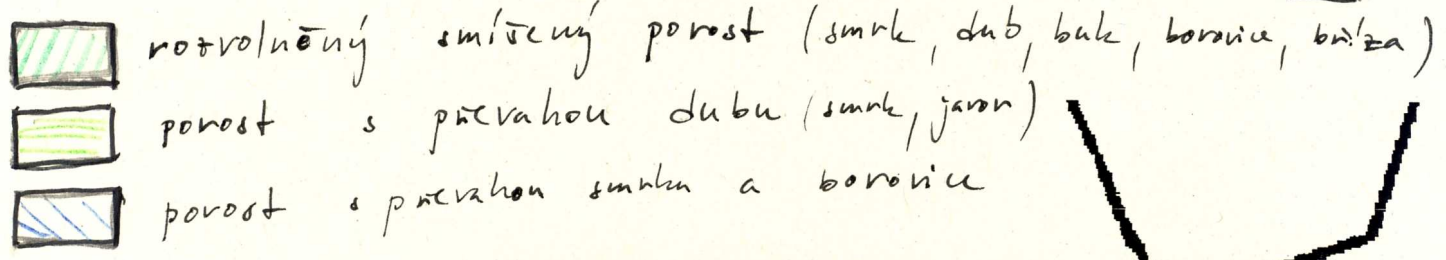 rozvolněný smíšený porost (smrk, dub, buk, borovice, bříza)
porost s převahou dubu (smrk, javor)
porost s převahou smrku a borovice